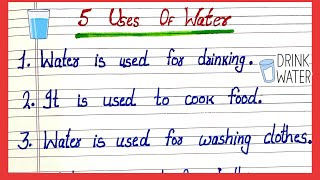 5 Uses Of Water
1. Water is used for drinking.
DRINK
WATER
2. It is used to cook food.
3. Water is used for washing clothes.